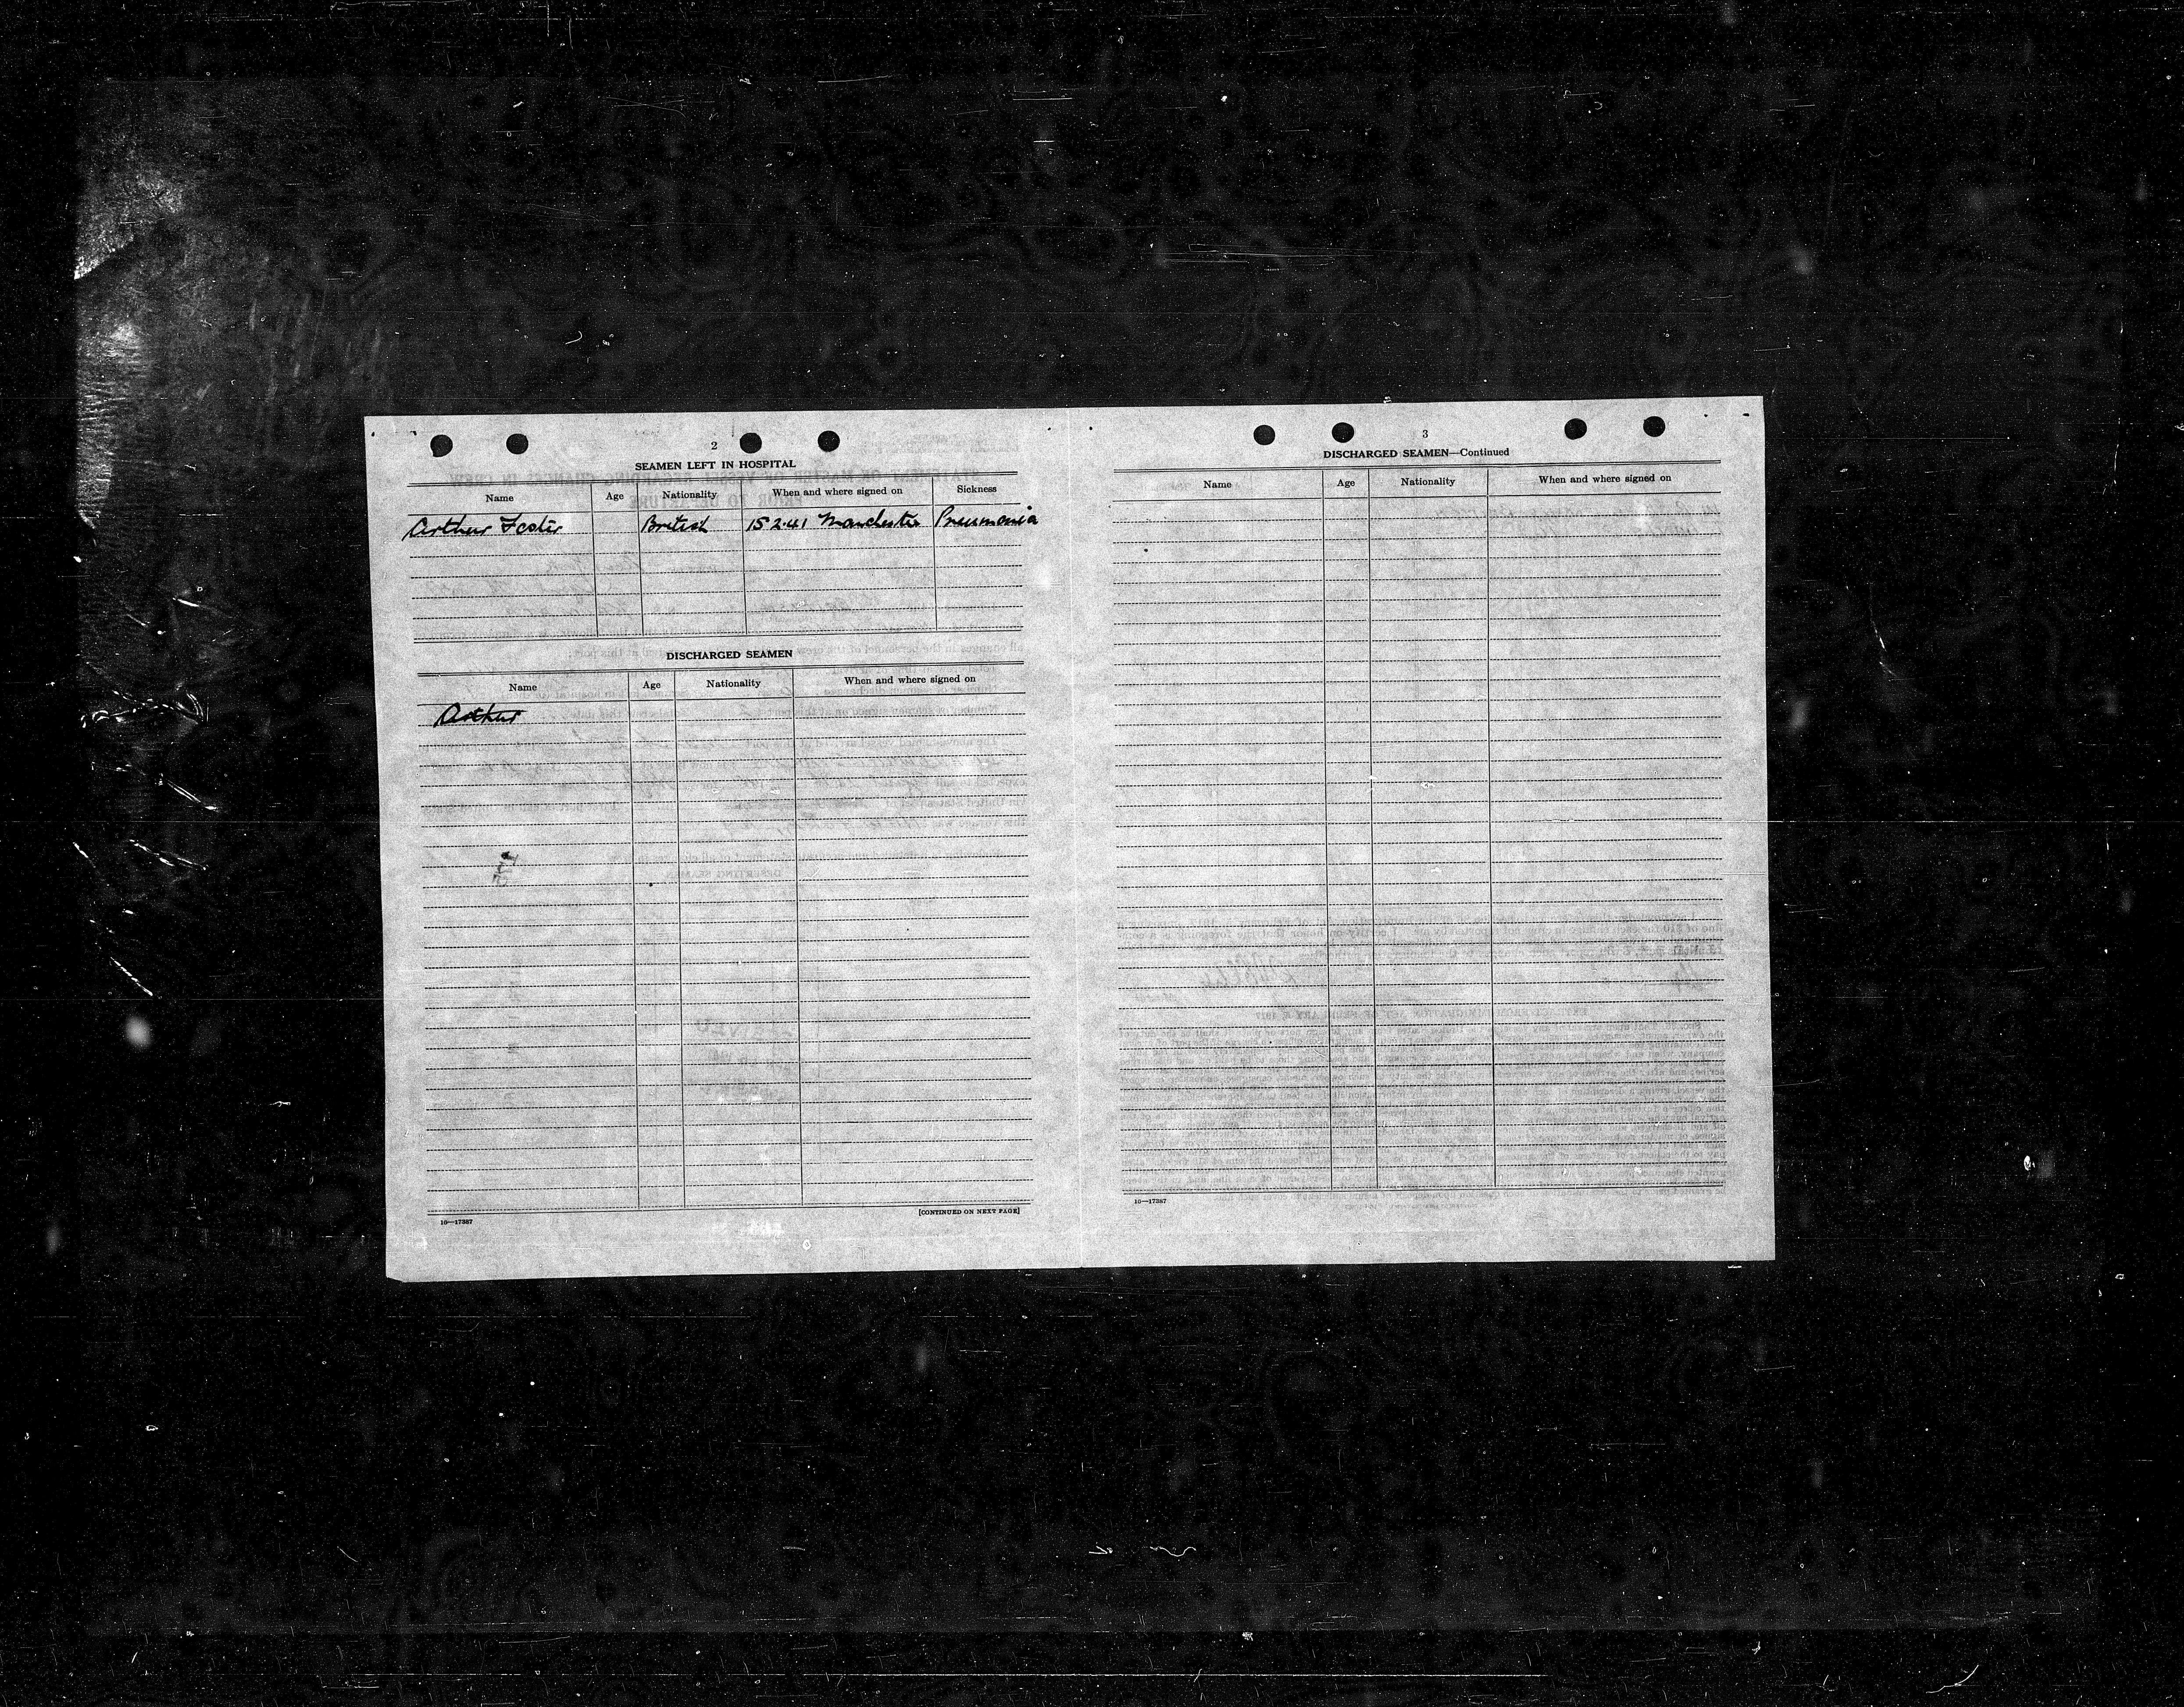 2
SEAMEN LEFT IN HOSPITAL
Name Age Nationality When and where signed on Sickness
Arthur Foster British 15.2.41 Manchester Pneumonia
DISCHARGED SEAMEN
Name Age Nationality When and where signed on
Arthur
[CONTINUED ON NEXT PAGE]
16—17387
3
DISCHARGED SEAMEN—Continued
Name Age Nationality When and where signed on
16—17387